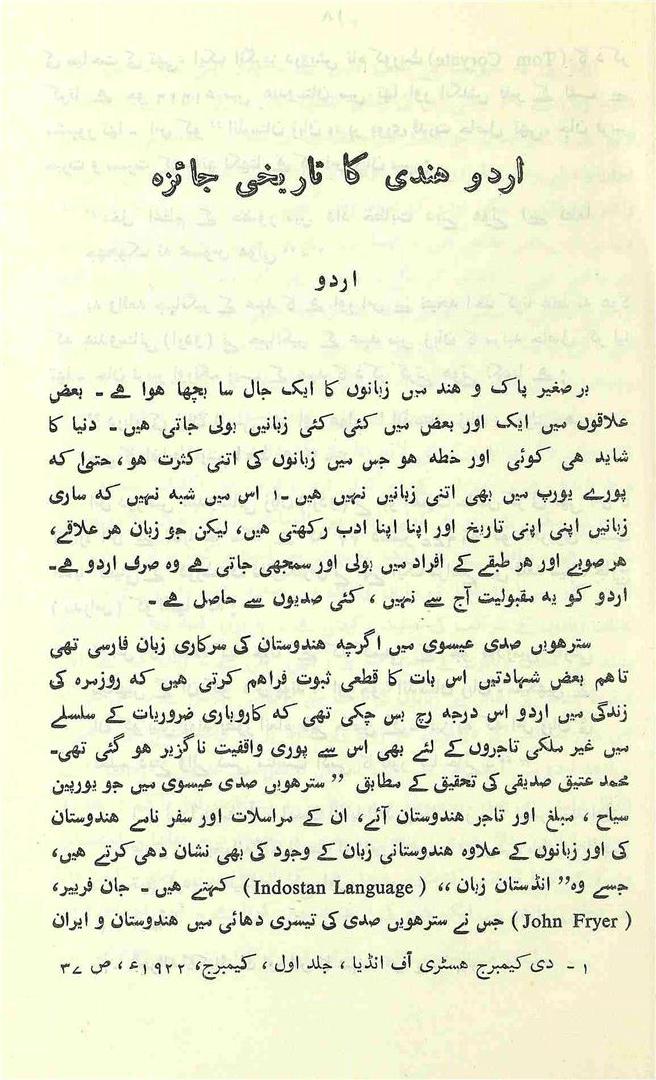 اردو هندی کا تاریخی جائزہ
اردو
بر صغیر پاک و هند میں زبانوں کا ایک جال سا بچھا ھوا ہے ۔ بعض
علاقوں میں ایک اور بعض میں کئی کئی زبانیں بولی جاتی ھیں ۔ دنیا کا
شاید ھی کوئی اور خطہ ھو جس میں زبانوں کی اتنی کثرت ھو ، حتیٰ کہ
پورے یورپ میں بھی اتنی زبانیں نہیں ھیں ۔۱ اس میں شبہ نہیں کہ ساری
زبانیں اپنی اپنی تاریخ اور اپنا اپنا ادب رکھتی ھیں، لیکن جو زبان ھر علاقے،
ھر صوبے اور ھر طبقے کے افراد میں بولی اور سمجھی جاتی ہے وہ صرف اردو ہے۔
اردو کو یہ مقبولیت آج سے نہیں ، کئی صدیوں سے حاصل ہے ۔
سترھویں صدی عیسوی میں اگرچہ ھندوستان کی سرکاری زبان فارسی تھی
تاھم بعض شہادتیں اس بات کا قطعی ثبوت فراھم کرتی ھیں کہ روزمرہ کی
زندگی میں اردو اس درجہ رچ بس چکی تھی کہ کاروباری ضروریات کے سلسلے
میں غیر ملکی تاجروں کے لئے بھی اس سے پوری واقفیت ناگزیر ھو گئی تھی۔
محمد عتیق صدیقی کی تحقیق کے مطابق ”سترھویں صدی عیسوی میں جو یورپین
سیاح ، مبلغ اور تاجر ھندوستان آئے، ان کے مراسلات اور سفر نامے ھندوستان
کی اور زبانوں کے علاوہ ھندوستانی زبان کے وجود کی بھی نشان دھی کرتے ھیں،
جسے وہ” انڈستان زبان ،، ( Indostan Language ) کہتے ھیں ۔ جان فرییر،
( John Fryer ) جس نے سترھویں صدی کی تیسری دھائی میں ھندوستان و ایران
۱ ۔ دی کیمبرج ھسٹری آف انڈیا ، جلد اول ، کیمبرج، ۱۹۲۲ء ، ص ۳۷